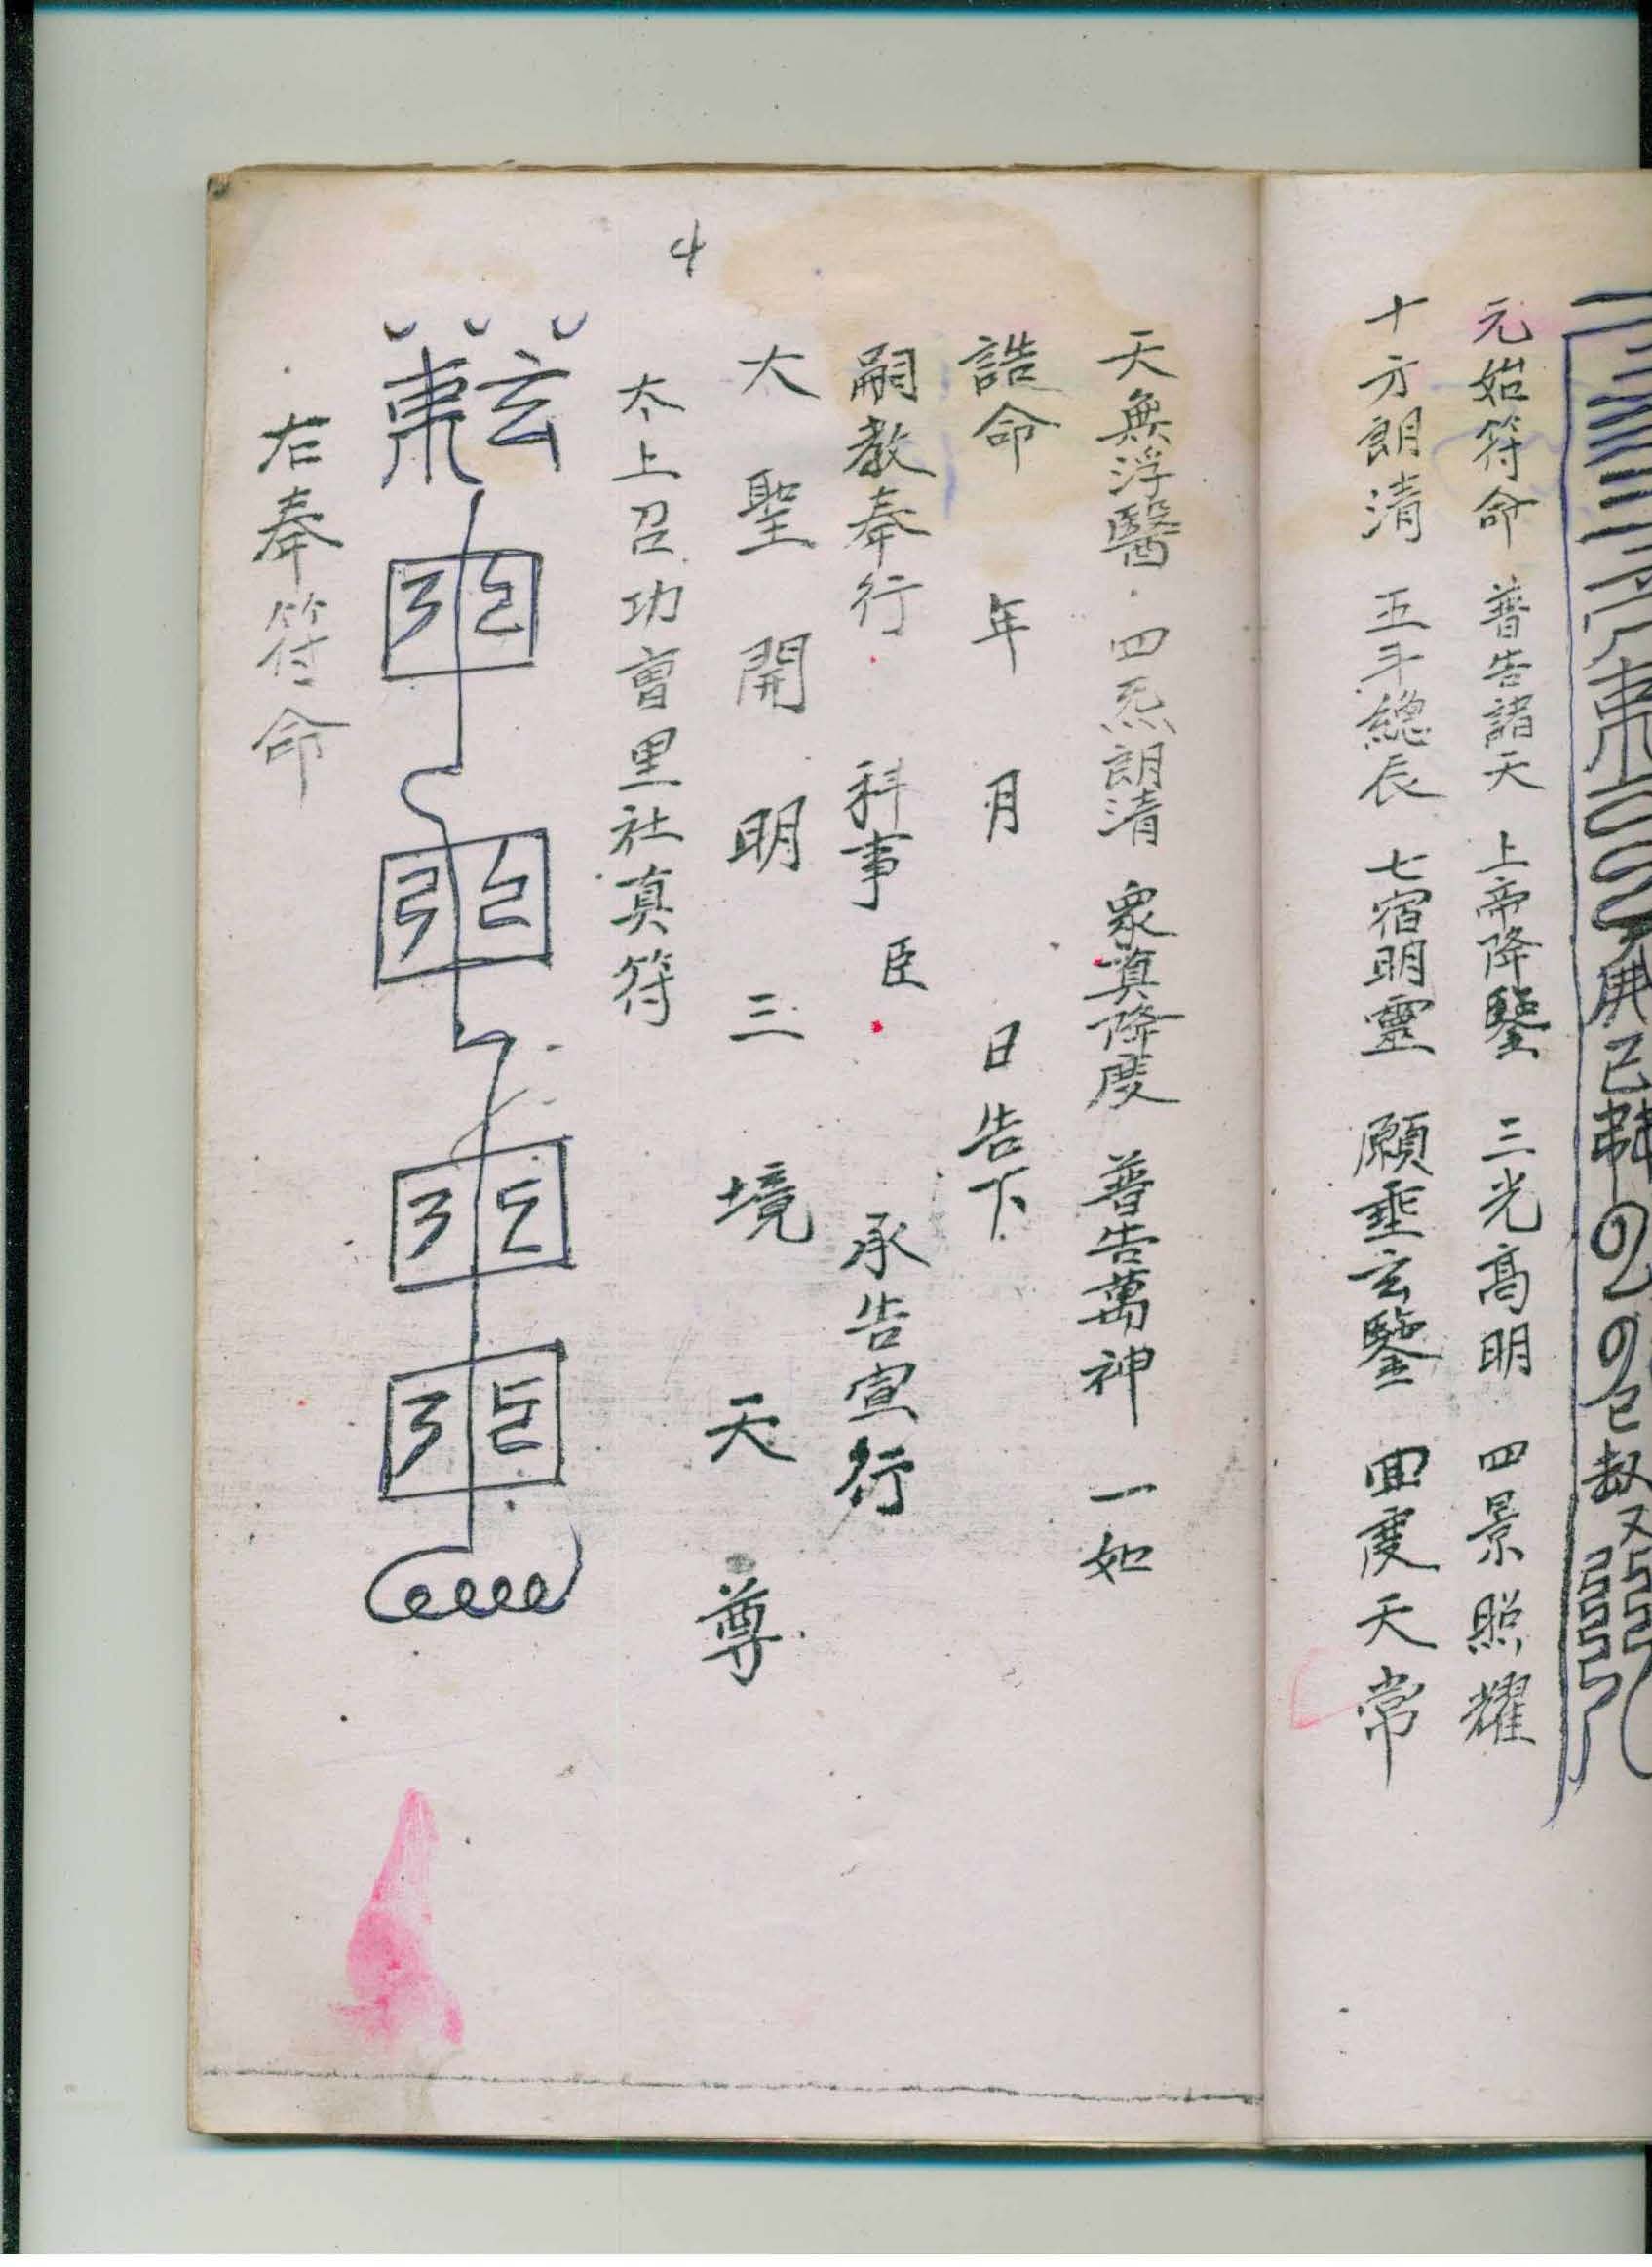 元始符命 普告諸天 上帝降鑒 三光高明 四景照耀
十方朗清 五斗總辰 七宿明靈 願垂玄鑒 回度天常
4
天無浮醫 四炁朗清 眾真降度 普告萬神 一如
誥命 年 月 日告下
嗣教奉行 科事 臣 承告宣行
大聖開明三境天尊
太上召功曹里社真符
右奉符命